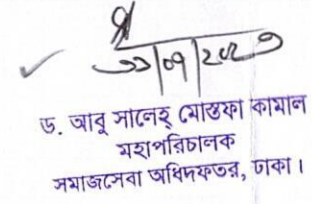 ১১/০৭/২০২৩
ড. আবু সালেহ্ মোস্তফা কামাল
মহাপরিচালক
সমাজসেবা অধিদফতর, ঢাকা।